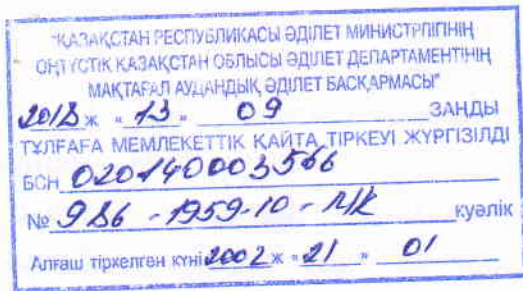 "ҚАЗАҚСТАН РЕСПУБЛИКАСЫ ӘДІЛЕТ МИНИСТРЛІГІНІҢ
ОҢТҮСТІК ҚАЗАҚСТАН ОБЛЫСЫ ӘДІЛЕТ ДЕПАРТАМЕНТІНІҢ
МАҚТАРАЛ АУДАНДЫҚ ӘДІЛЕТ БАСҚАРМАСЫ"
2018 ж "13" 09 ЗАҢДЫ
ТҰЛҒАҒА МЕМЛЕКЕТТІК ҚАЙТА ТІРКЕУІ ЖҮРГІЗІЛДІ
БСН 020140003566
№ 986-1959-10-М/К куәлік
Алғаш тіркелген күні 2002 ж "21" 01